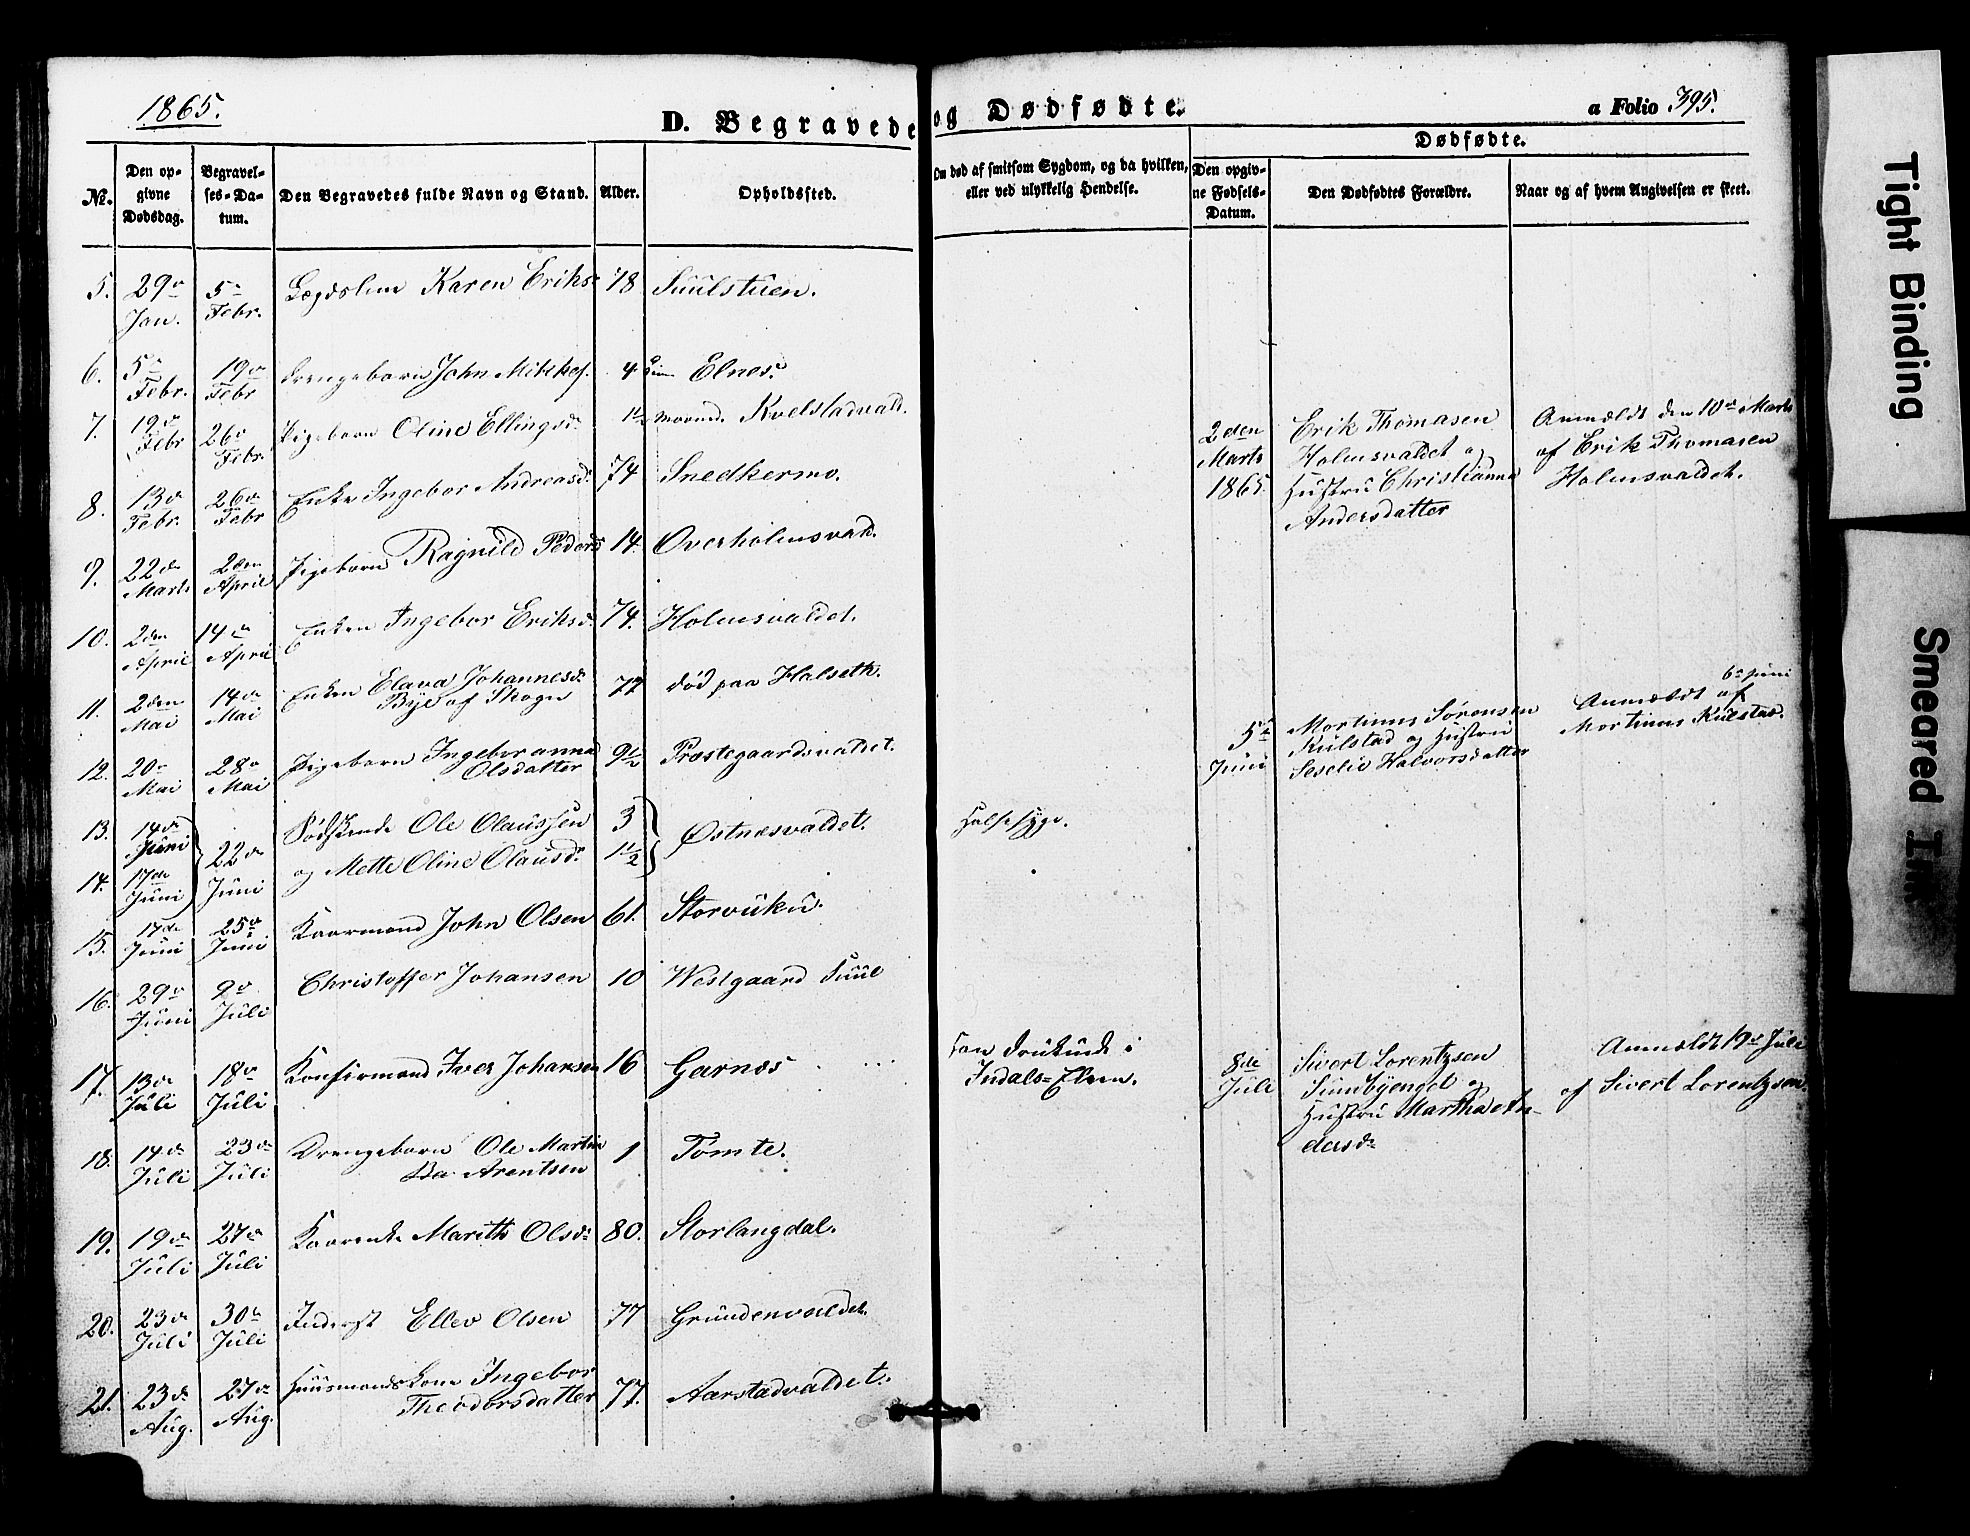 1865.
D. Begravede og Dødfødte.
a Folio 395.
No.
Den op-
givne
Dødsdag.
Begravel-
ses-Da-
tum.
Den Begravedes fulde Navn og Stand.
Alder.
Opholdssted.
Om død af smitsom Sygdom, og da hvilken,
eller ved ulykkelig Hendelse.
Dødfødte.
Den opgiv-
ne Fødsels-
Datum.
Den Dødfødtes Forældre.
Naar og af hvem Angivelsen er skeet.
5. 29de Jan. 5te Febr. Lægdslem Karen Eriksd. 78 Suulstuen.
6. 5te Febr. 19de Febr Drengebarn John Mikkels. 4 Elnes.
7. 19de Febr 26de Febr. Pigebarn Oline Ellingsd. 1½ Kvelstadvald.
8. 13de Febr. 26de Febr Enke Ingebor Andreasd. 74 Snedkermo.
2den
Marts
1865.
Erik Thomasen
Holmsvaldet og
Hustru Christianna
Andersdatter
Anmeldt den 10de Marts
af Erik Thomasen
Holmsvaldet.
9. 22de Marts 2den April Pigebarn Ragnild Peders 14. Overholmsvald.
10. 2den April 14de April Enken Ingebor Eriksd. 74. Holmsvaldet.
11. 2den Mai 14de Mai Enken Elava Johannesd.
Bye af Skogn 77 død paa Halseth.
12. 20de Mai 28de Mai Pigebarn Ingeboranna
Olsdatter 9½ Præstegaardsvaldet.
5te
Juni
Martinus Sørensen
Kulstad og Hustru
Seselie Halvorsdatter
6te Juni
Anmeldt af
Martinus Kulstad.
13. 14de Juni 22de Juni Sødskende Ole Olaussen 3 Østnesvaldet. Halssyge.
14. 17de Juni og Mette Oline Olausd. 1½
15. 17de Juni 25de Juni Kaarmand John Olsen 61. Storvuku.
16. 29de Juni 9de Juli Christoffer Johansen 10 Westgaard Suul
17. 13de Juli 18de Juli Konfirmand Iver Johansen 16 Garnæs
han druknede i
Indals-Elven.
8de
Juli
Sivert Lorentzsen
Sundbyenget og
Hustru Martha An-
dersd.
Anmeldt 19de Juli
af Sivert Lorentzsen.
18. 14de Juli 23de Juli Drengebarn Ole Martin
Arentsen 1 Tømte.
19. 19de Juli 27de Juli Kaarenke Marith Olsd. 80. Storlangdal.
20. 23de Juli 30te Juli Inderst Ellev Olsen 77 Grundenvaldet.
21. 23de Aug. 27de Aug. Huusmandskone Ingebor
Theodorsdatter 77. Aarstadvaldet.
Tight Binding
Smeared Ink